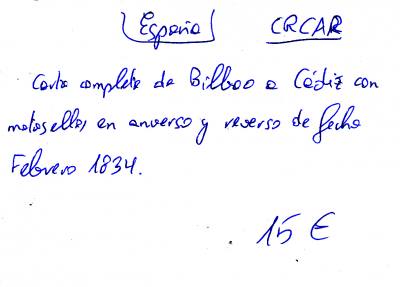 España CRCAR
Carta completa de Bilbao a Cádiz con
matasellos en anverso y reverso de fecha
Febrero 1834.
15 €